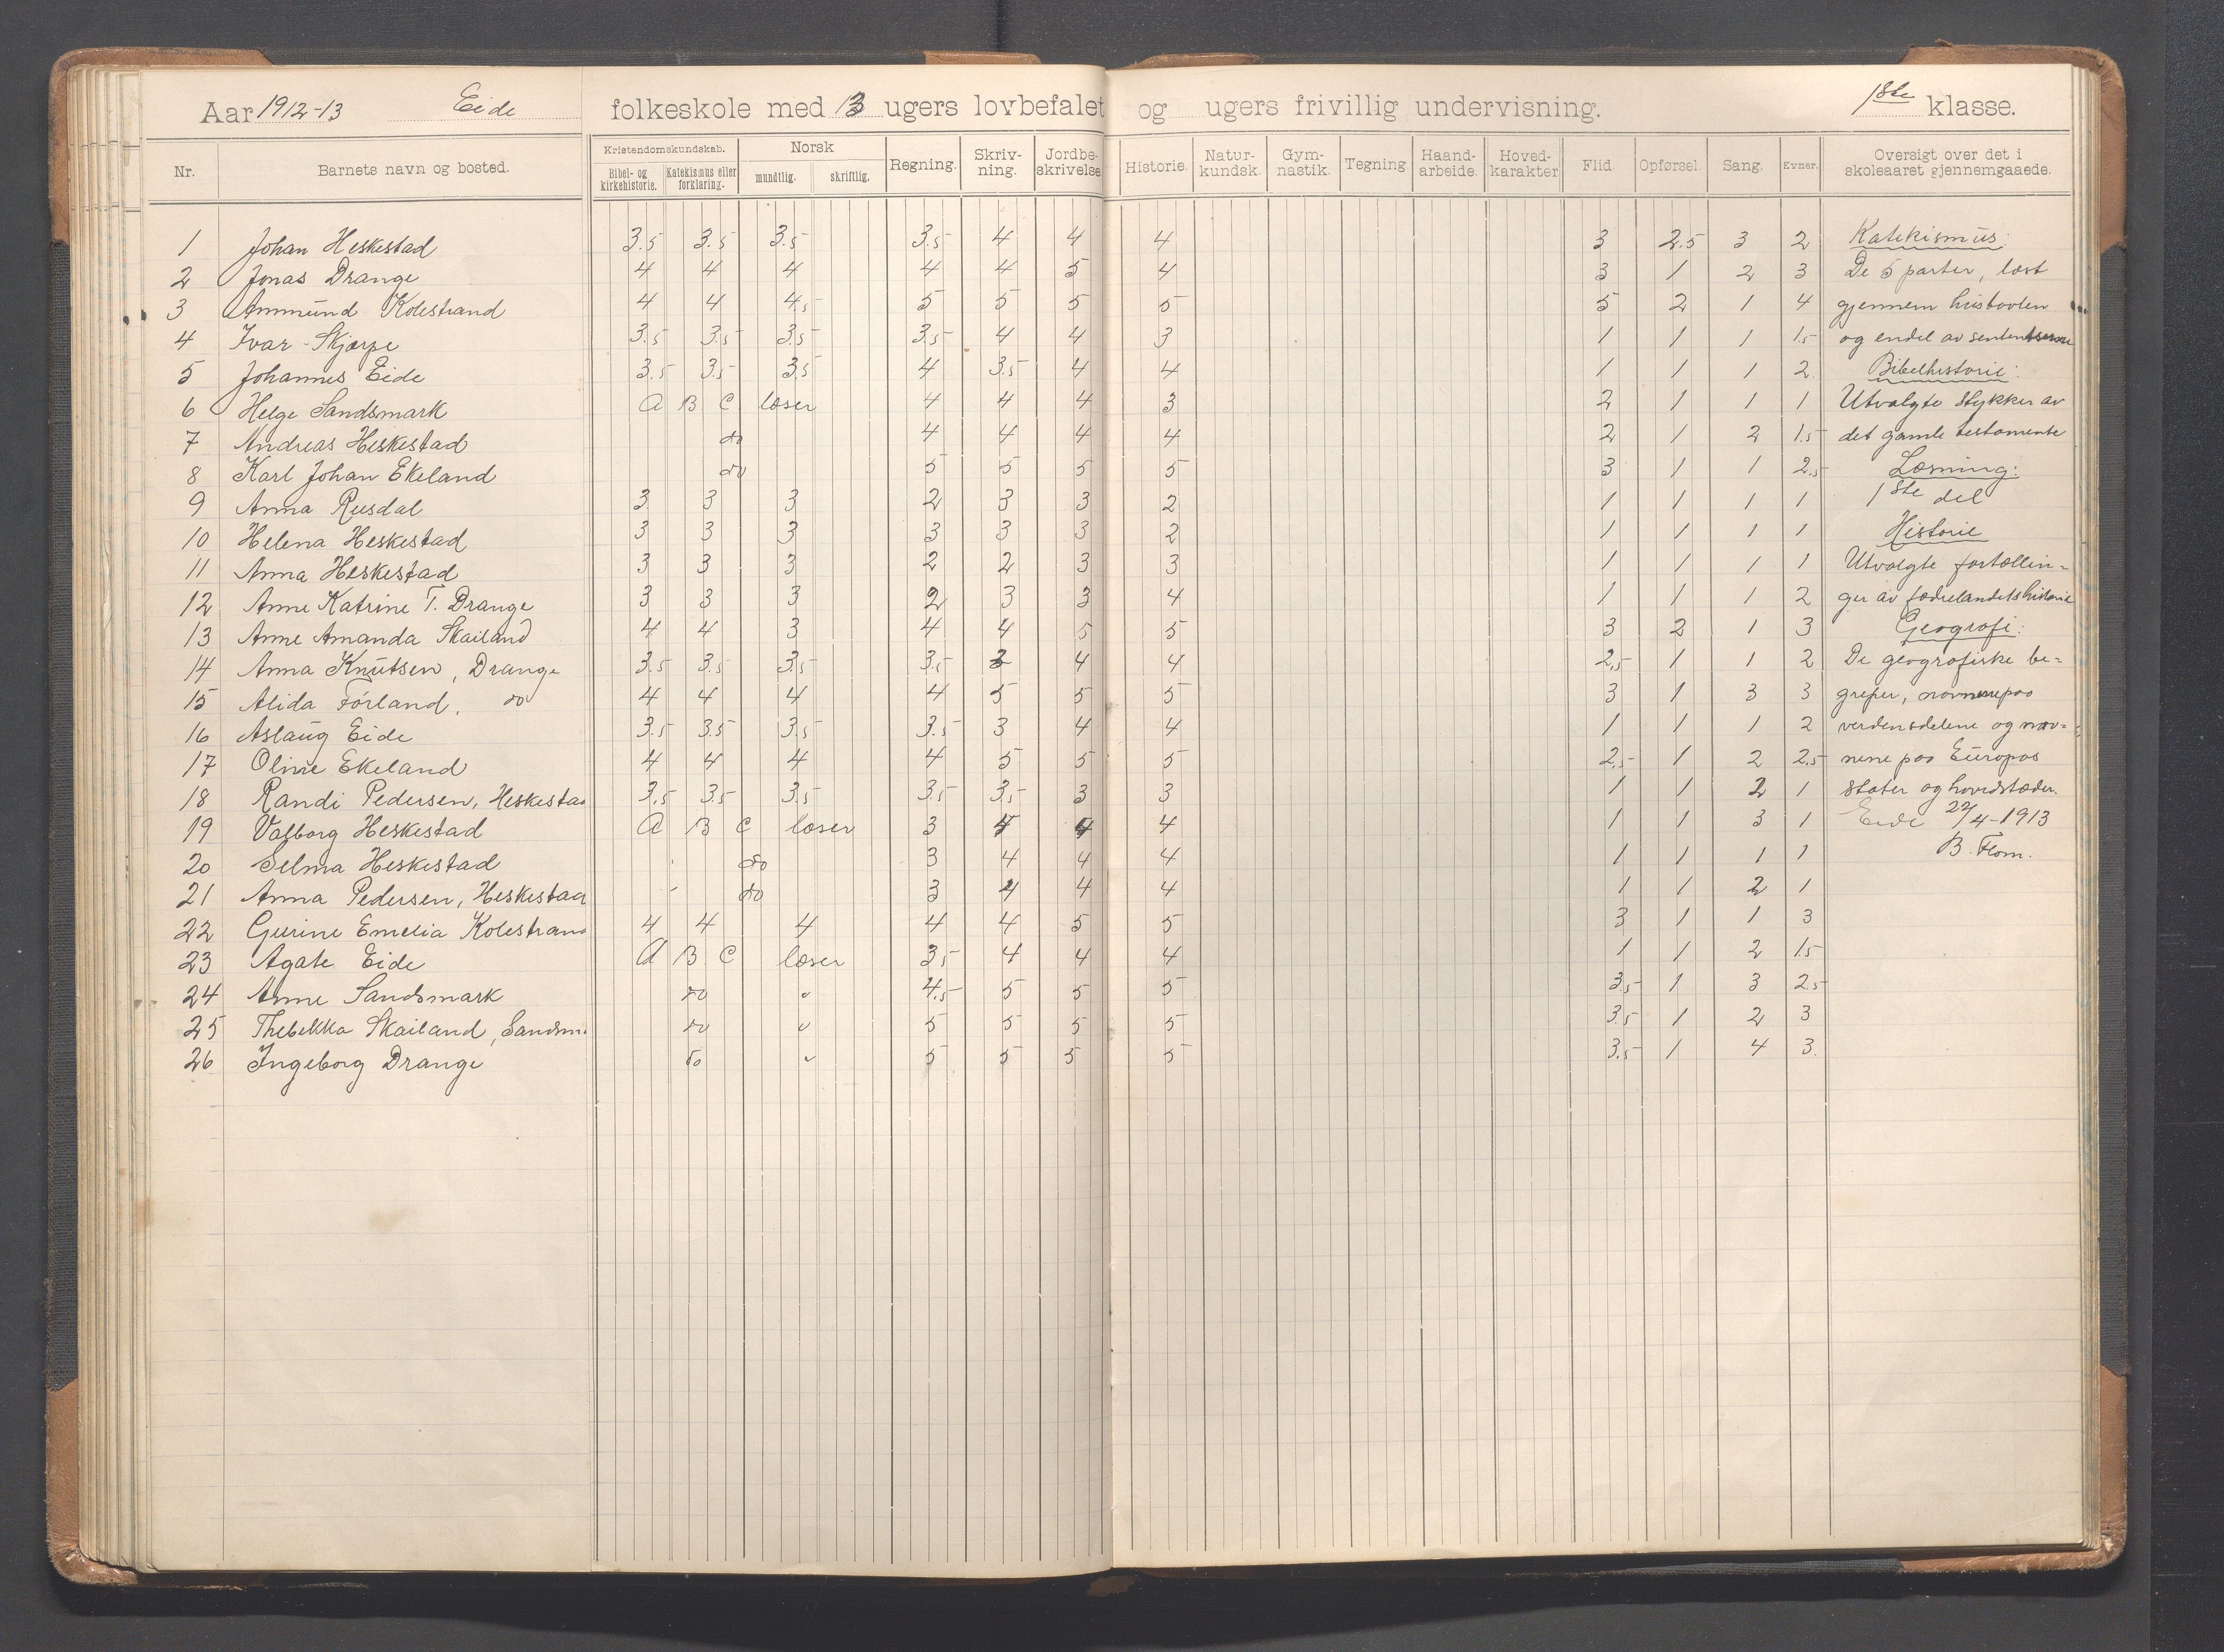 Aar 1912-13 Eide folkeskole med 13 ugers lovbefalet og ugers frivillig undervisning. 1ste klasse.
Nr. Barnets navn og bosted. Kristendomskundskab. Bibel- og kirkehistorie. Katekismus eller forklaring. Norsk mundtlig. skriftlig. Regning. Skriv-ning. Jordbe-skrivelse Historie. Natur-kundsk. Gym-nastik. Tegning Haand-arbeide. Hoved-karakter Flid. Opførsel Sang. Evner. Oversigt over det i skoleaaret gjennemgaaede.
1 Johan Heskestad 3.5 3.5 3.5 3.5 4 4 4 3 2.5 3 2 Katekismus:
2 Jonas Drange 4 4 4 4 4 5 4 3 1 2 3 De 5 parter, læst
3 Ammund Kolestrand 4 4 4.5 5 5 5 5 5 2 1 4 gjennem hustavlen
4 Ivar Skjærpe 3.5 3.5 3.5 3.5 4 4 3 1 1 1 1.5 og endel av sentenserne
5 Johannes Eide 3.5 3.5 3.5 4 3.5 4 4 1 1 1 2 Bibelhistorie:
6 Helge Sandsmark A B C læser 4 4 4 3 2 1 1 1 Utvalgte stykker av
7 Andreas Heskestad do 4 4 4 4 2 1 2 1.5 det gamle testamente
8 Karl Johan Ekeland do 5 5 5 5 3 1 1 2.5 Læsning:
9 Anna Rusdal 3 3 3 2 3 3 2 1 1 1 1 1ste del
10 Helena Heskestad 3 3 3 3 3 3 2 1 1 1 1 Historie
11 Anna Heskestad 3 3 3 2 2 3 3 1 1 1 1 Utvalgte fortællin=
12 Anne Katrine T. Drange 3 3 3 2 3 3 4 1 1 1 2 ger av fædrelandets historie
13 Anne Amanda Skailand 4 4 3 4 4 5 5 3 2 1 3 Geografi:
14 Anna Knutsen, Drange 3.5 3.5 3.5 3.5 3 4 4 2.5 1 1 2 De geografiske be=
15 Alida Førland, do 4 4 4 4 5 5 5 3 1 3 3 greper, navnene paa
16 Aslaug Eide 3.5 3.5 3.5 3.5 3 4 4 1 1 1 2 verdensdelene og nav=
17 Oline Ekeland 4 4 4 4 5 5 5 2.5 1 2 2.5 nene paa Europas
18 Randi Pedersen, Heskestad 3.5 3.5 3.5 3.5 3.5 3 3 1 1 2 1 stater og hovedstæder.
19 Valborg Heskestad A B C læser 3 4 4 4 1 1 3 1 Eide 22/4-1913
20 Selma Heskestad do 3 4 4 4 1 1 1 1 B. Flom.
21 Anna Pedersen, Heskestad do 3 4 4 4 1 1 2 1
22 Gurine Emelia Kolestrand 4 4 4 4 4 5 5 3 1 1 3
23 Agate Eide A B C læser 3.5 4 4 4 1 1 2 1.5
24 Anne Sandsmark do " 4.5 5 5 5 3.5 1 3 2.5
25 Thebekka Skailand, Sandsm. do " 5 5 5 5 3.5 1 2 3
26 Ingeborg Drange do " 5 5 5 5 3.5 1 4 3.